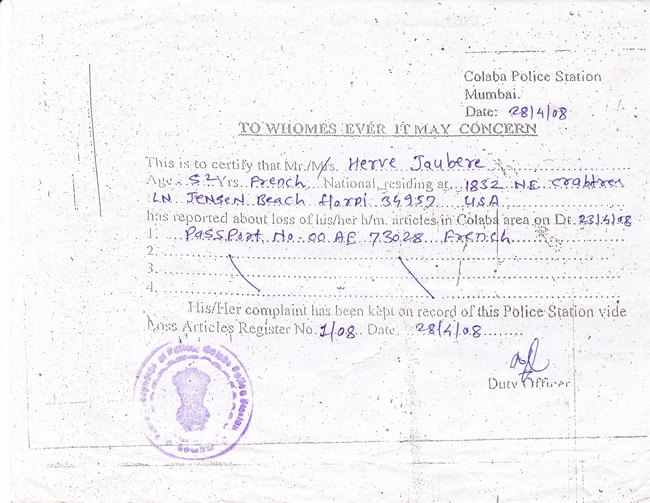 Colaba Police Station
Mumbai.
Date: 28/4/08
TO WHOMES EVER IT MAY CONCERN
This is to certify that Mr./Mrs. Herve Jaubere
Age: 52 Yrs. French National, residing at 1832 NE Crabtres
LN JENSEN Beach florDi 34957 USA
has reported about loss of his/her h/m. articles in Colaba area on Dt. 23/4/08
1. PassPort No. 00 AE 73028 French
2.
3.
4.
His/Her complaint has been kept on record of this Police Station vide
Loss Articles Register No. 1/08 Date. 28/4/08
Duty Officer
Colaba Police Station